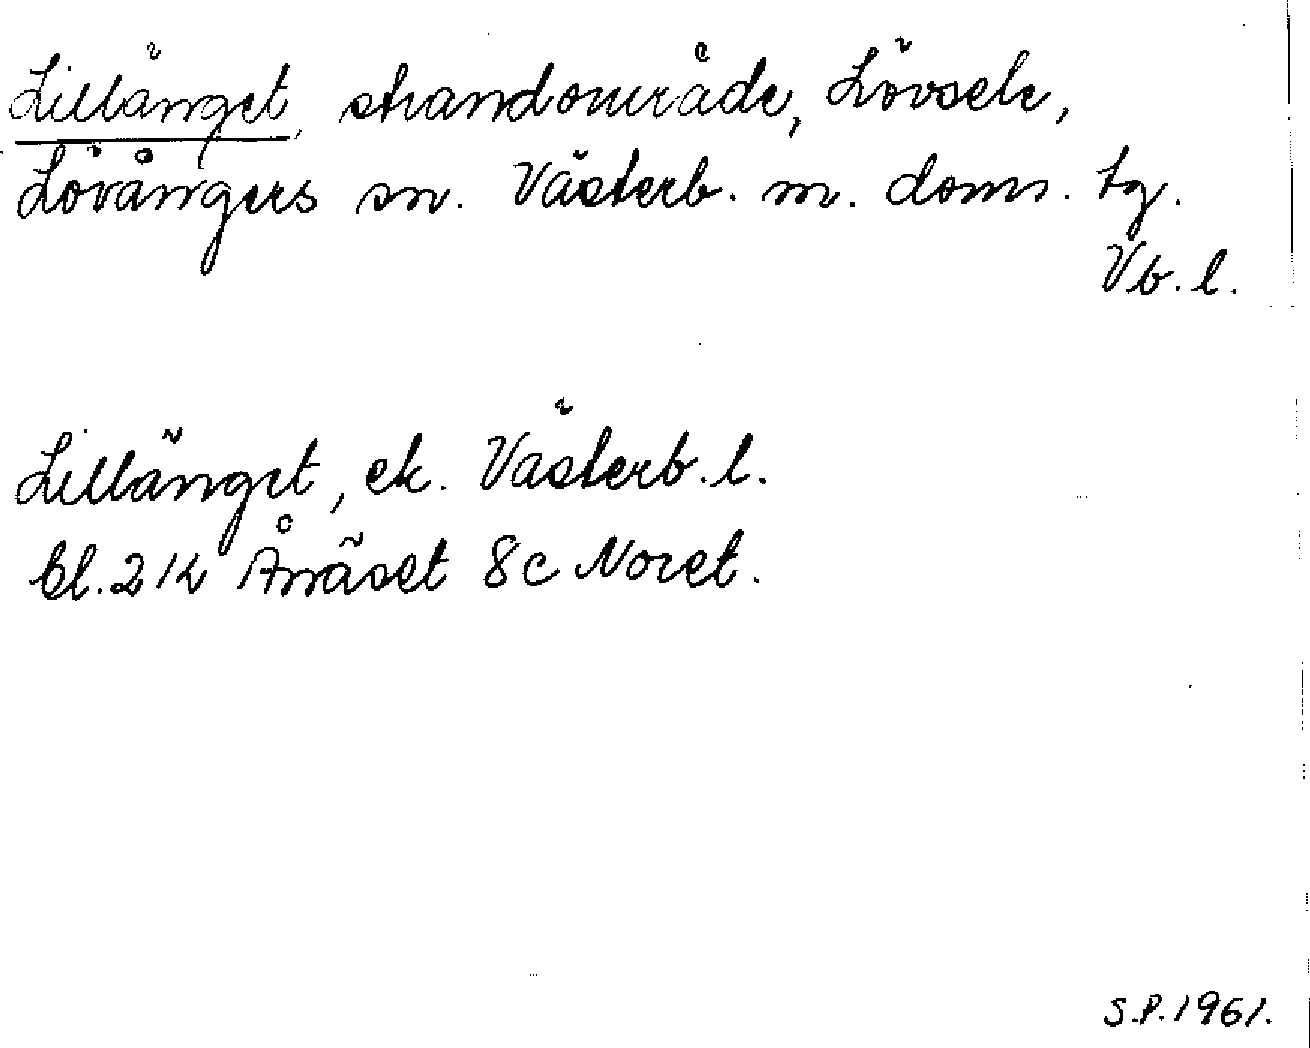 Lillänget, strandområde, Lövsele,
Lövångers sn. Västerb. m. doms. tg.
Vb. l.
Lillänget, ek. Västerb. l.
bl. 21K Ånäset 8c Noret.
S.P. 1961.